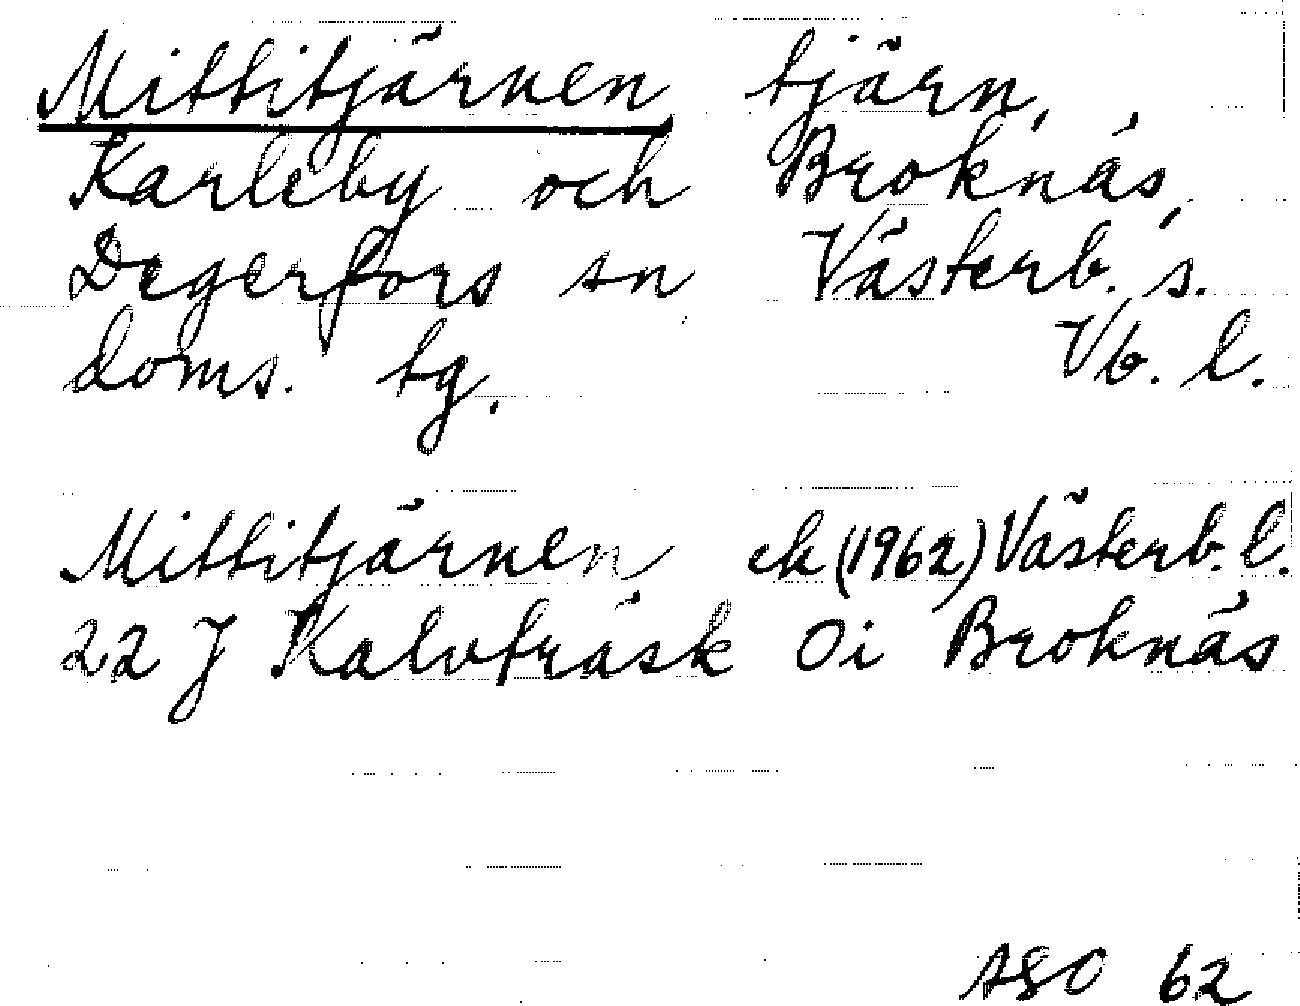 Mittitjärnen, tjärn,
Karleby och Broknäs,
Degerfors sn Västerb. s.
doms. tg. Vb. l.
Mittitjärnen ek (1962) Västerb. l.
22 J Kalvträsk Oi Broknäs
ASO 62